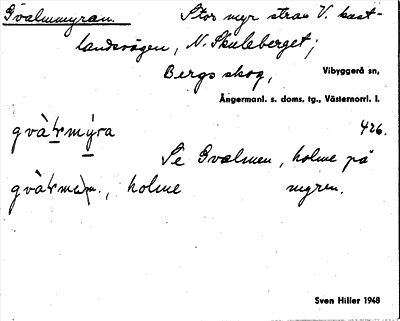 Gvalmmyran. Stor myr strax V. kust-
landsvägen, N. Skuleberget;
Bergs skog, Vibyggerå sn,
Ångermanl. s. doms. tg., Västernorrl. l.
gvàɫmýra 426.
Se Gvalmen, holme på
, holme myren.
Sven Hiller 1948